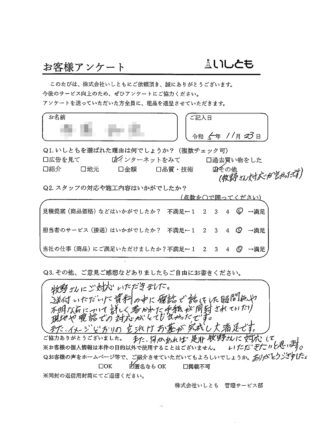 お客様アンケート
いしとも
このたびは、株式会社いしともにご依頼頂き、誠にありがとうございます。
今後のサービス向上のため、ぜひアンケートにご協力ください。
アンケートを送っていただいた方全員に、粗品を進呈させていただきます。
お名前
ご記入日
令和 5年 11月 23日
Q1.いしともを選ばれた理由は何でしょうか？（複数チェック可）
□広告を見て ☑インターネットをみて □過去買い物をした
□紹介 □地元 □金額 □品質・技術 ☑その他
(牧野さん対応が良かった)
Q2.スタッフの対応や施工内容はいかがでしたか？
（点数を○で囲ってください）
見積提案（商品価格）などはいかがでしたか？ 不満足←1 2 3 4 ⑤→満足
担当者のサービス（接遇）はいかがでしたか？ 不満足←1 2 3 4 ⑤→満足
当社の仕事（商品）にご満足いただけましたか？不満足←1 2 3 4 ⑤→満足
Q3.その他、ご意見ご感想などありましたらご自由にお書きください。
牧野さんにご対応いただきました。
送付いただいた資料の中に電話で話をした疑問点や
不明な点について詳しく書かれた手紙が同封されていたり
現地や電話での対応がとても良かったです。
また、イメージどおりの
お墓が完成し大満足です。
ご協力ありがとうございました。
また、何かあれば是非牧野さんに対応して
※お客様の個人情報は本件の目的以外で使用することはございません。
いただきたいと思います。
Q.お客様の声をホームページ等で、ご紹介させていただいてもよろしいでしょうか。
ありがとうございました。
□OK ☑匿名ならOK □掲載不可
※同封の返信用封筒にてご返信ください。
株式会社いしとも 管理サービス部